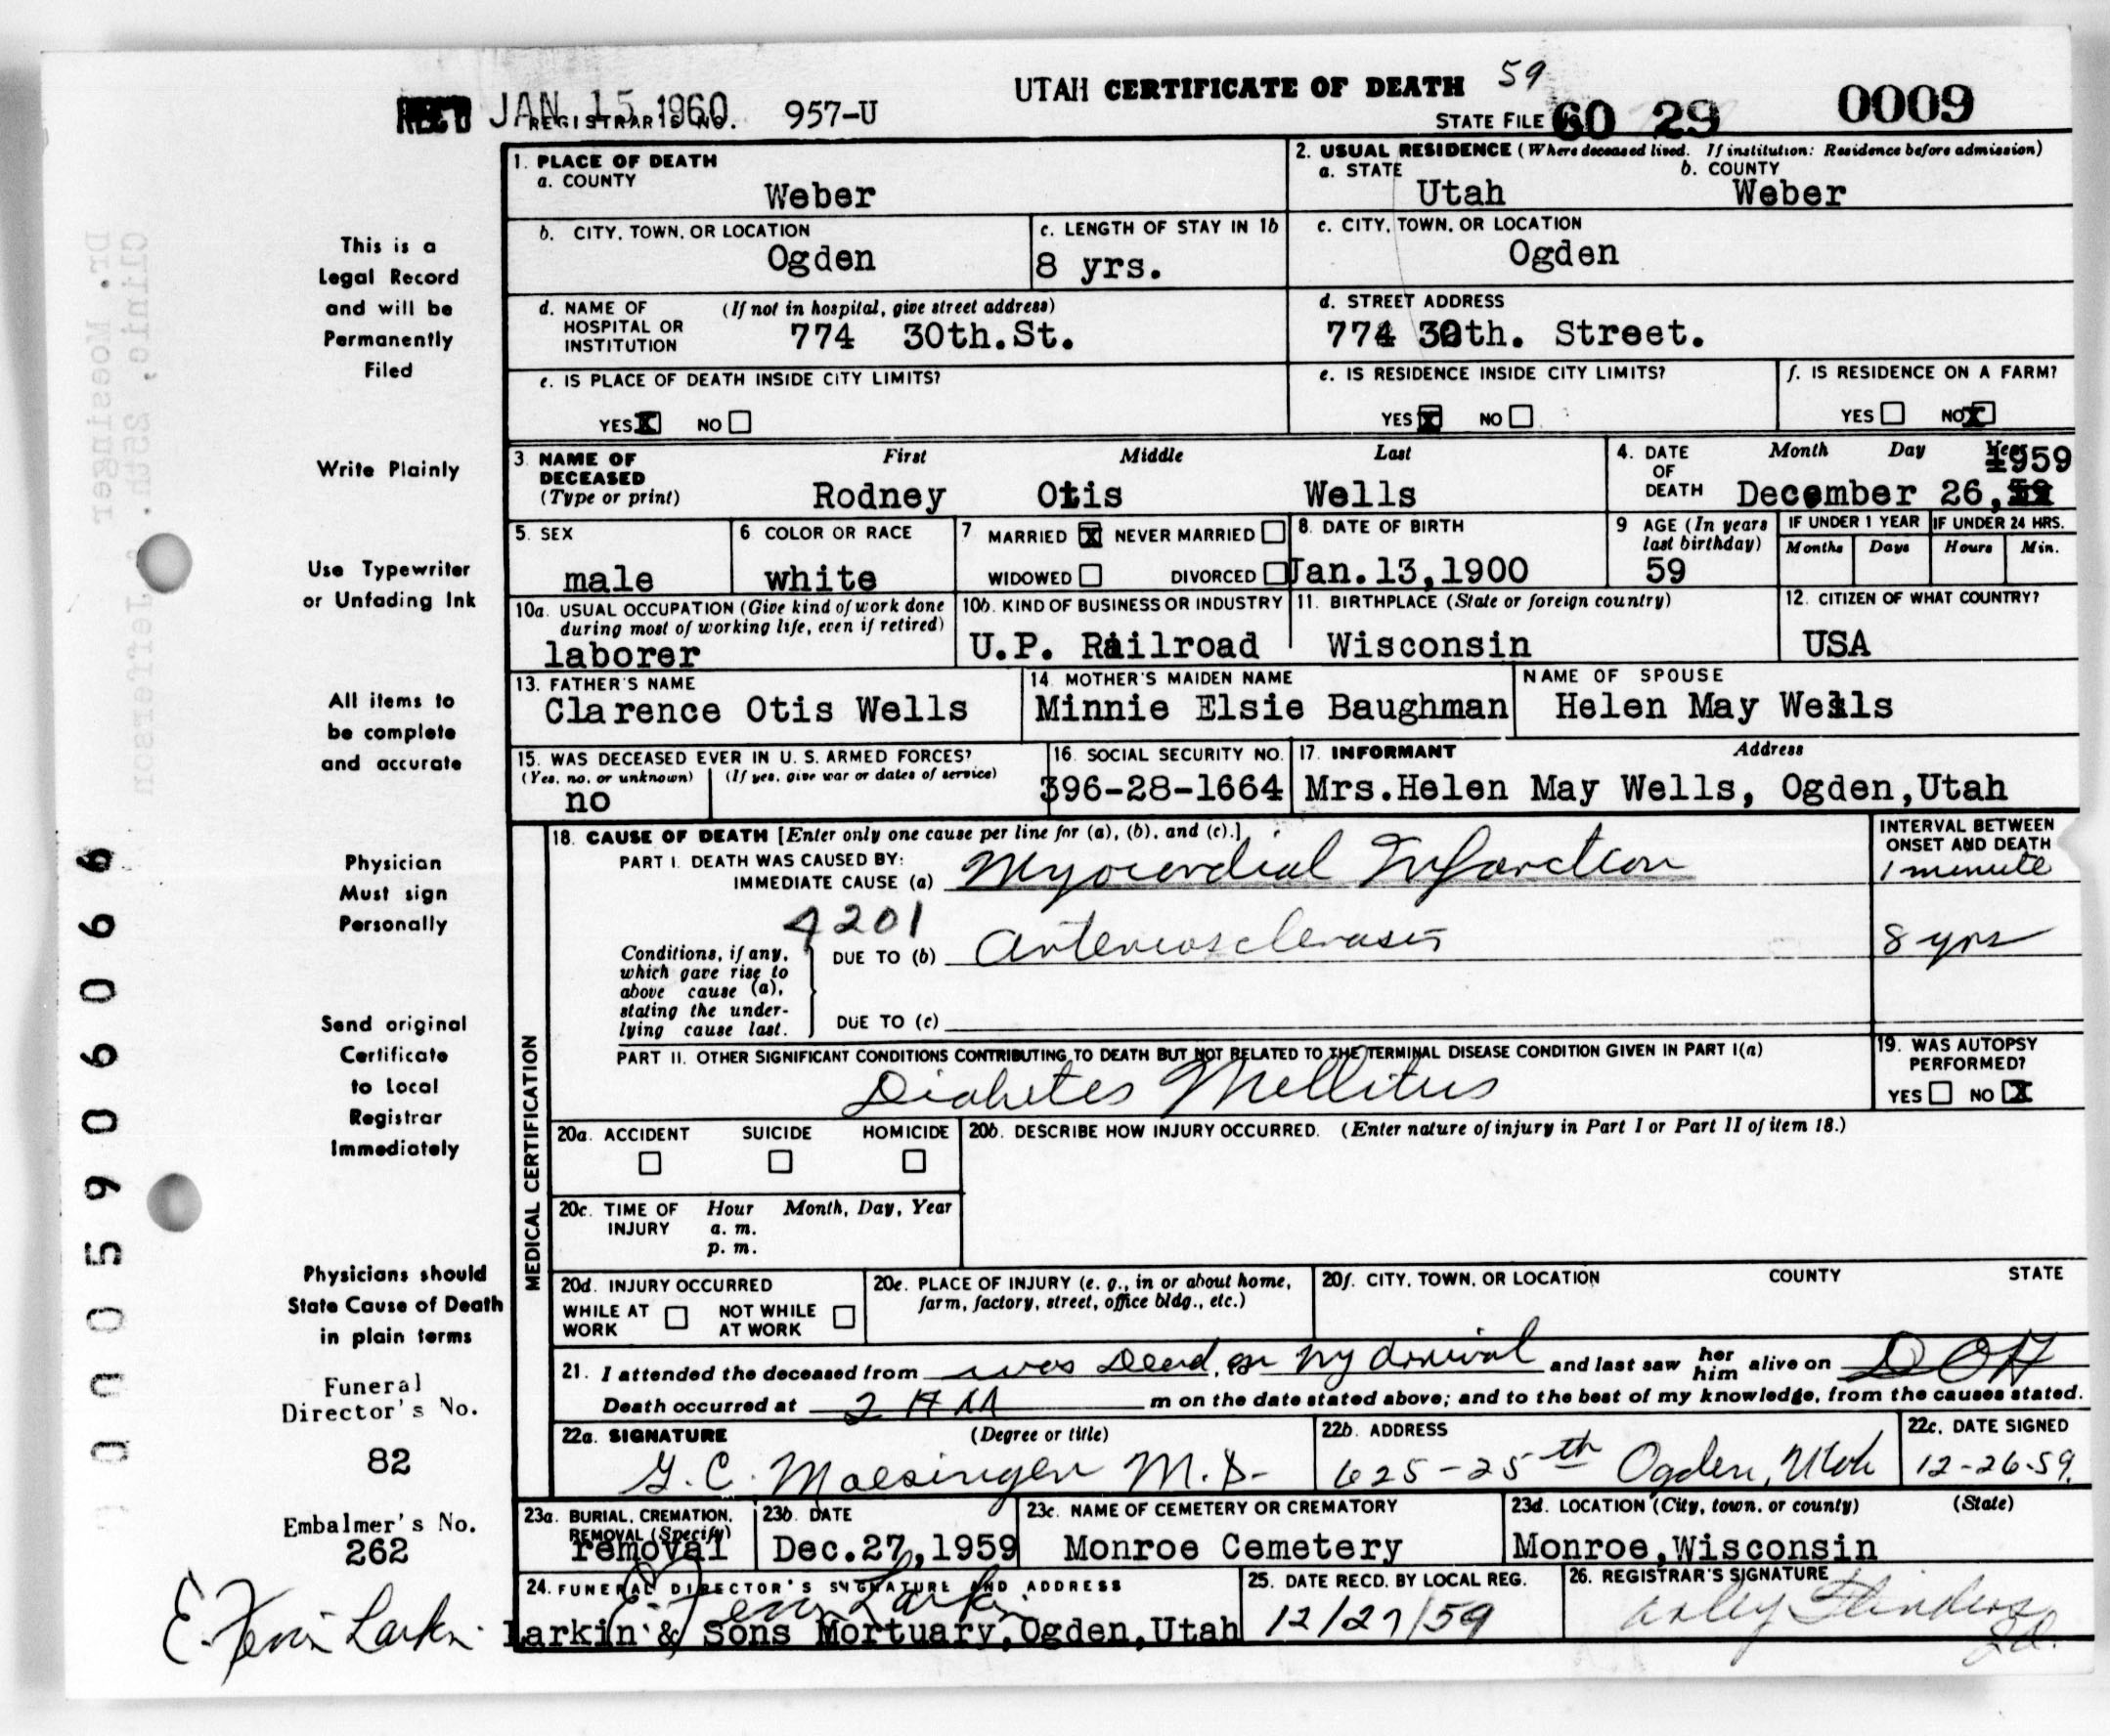 UTAH CERTIFICATE OF DEATH 59
REC'D JAN 15 1960 REGISTRAR'S NO. 957-U STATE FILE 60 29 0009
1. PLACE OF DEATH
a. COUNTY
Weber
2. USUAL RESIDENCE (Where deceased lived. If institution: Residence before admission)
a. STATE b. COUNTY
Utah Weber
b. CITY, TOWN, OR LOCATION
Ogden
c. LENGTH OF STAY IN 1b
8 yrs.
c. CITY, TOWN, OR LOCATION
Ogden
d. NAME OF (If not in hospital, give street address)
HOSPITAL OR
INSTITUTION
774 30th.St.
d. STREET ADDRESS
774 30th. Street.
e. IS PLACE OF DEATH INSIDE CITY LIMITS?
YES X NO
e. IS RESIDENCE INSIDE CITY LIMITS?
YES X NO
f. IS RESIDENCE ON A FARM?
YES NO X
3. NAME OF First Middle Last
DECEASED
(Type or print)
Rodney Otis Wells
4. DATE Month Day Year
OF
DEATH
December 26, 1959
5. SEX
male
6. COLOR OR RACE
white
7 MARRIED X NEVER MARRIED
WIDOWED DIVORCED
8. DATE OF BIRTH
Jan.13,1900
9 AGE (In years
last birthday)
59
IF UNDER 1 YEAR IF UNDER 24 HRS.
Months Days Hours Min.
10a. USUAL OCCUPATION (Give kind of work done
during most of working life, even if retired)
laborer
10b. KIND OF BUSINESS OR INDUSTRY
U.P. Railroad
11. BIRTHPLACE (State or foreign country)
Wisconsin
12. CITIZEN OF WHAT COUNTRY?
USA
13. FATHER'S NAME
Clarence Otis Wells
14. MOTHER'S MAIDEN NAME
Minnie Elsie Baughman
NAME OF SPOUSE
Helen May Wells
15. WAS DECEASED EVER IN U. S. ARMED FORCES?
(Yes, no, or unknown) (If yes, give war or dates of service)
no
16. SOCIAL SECURITY NO.
396-28-1664
17. INFORMANT Address
Mrs.Helen May Wells, Ogden,Utah
18. CAUSE OF DEATH [Enter only one cause per line for (a), (b), and (c).]
PART I. DEATH WAS CAUSED BY:
IMMEDIATE CAUSE (a) Myocardial Infarction
INTERVAL BETWEEN
ONSET AND DEATH
1 minute
4201
Conditions, if any,
which gave rise to
above cause (a),
stating the under-
lying cause last.
DUE TO (b) arteriosclerosis
8 yrs
DUE TO (c)
PART II. OTHER SIGNIFICANT CONDITIONS CONTRIBUTING TO DEATH BUT NOT RELATED TO THE TERMINAL DISEASE CONDITION GIVEN IN PART I(a)
Diabetes Mellitus
19. WAS AUTOPSY
PERFORMED?
YES NO X
MEDICAL CERTIFICATION
20a. ACCIDENT SUICIDE HOMICIDE
20b. DESCRIBE HOW INJURY OCCURRED. (Enter nature of injury in Part I or Part II of item 18.)
20c. TIME OF Hour Month, Day, Year
INJURY a. m.
p. m.
20d. INJURY OCCURRED
WHILE AT NOT WHILE
WORK AT WORK
20e. PLACE OF INJURY (e. g., in or about home,
farm, factory, street, office bldg., etc.)
20f. CITY, TOWN, OR LOCATION COUNTY STATE
21. I attended the deceased from was Dead on my arrival and last saw her him alive on DOA
Death occurred at 2 AM m on the date stated above; and to the best of my knowledge, from the causes stated.
22a. SIGNATURE (Degree or title)
G. C. Moesinger M.D.
22b. ADDRESS
625-25th Ogden, Utah
22c. DATE SIGNED
12-26-59
23a. BURIAL, CREMATION,
REMOVAL (Specify)
removal
23b. DATE
Dec.27,1959
23c. NAME OF CEMETERY OR CREMATORY
Monroe Cemetery
23d. LOCATION (City, town, or county) (State)
Monroe,Wisconsin
24. FUNERAL DIRECTOR'S SIGNATURE AND ADDRESS
Larkin & Sons Mortuary,Ogden,Utah
25. DATE RECD. BY LOCAL REG.
12/27/59
26. REGISTRAR'S SIGNATURE
This is a
Legal Record
and will be
Permanently
Filed
Write Plainly
Use Typewriter
or Unfading Ink
All items to
be complete
and accurate
Physician
Must sign
Personally
Send original
Certificate
to Local
Registrar
Immediately
Physicians should
State Cause of Death
in plain terms
Funeral
Director's No.
82
Embalmer's No.
262
E. Kevin Larkin
Dr. Moesinger
Clinic, 25th. & Jefferson